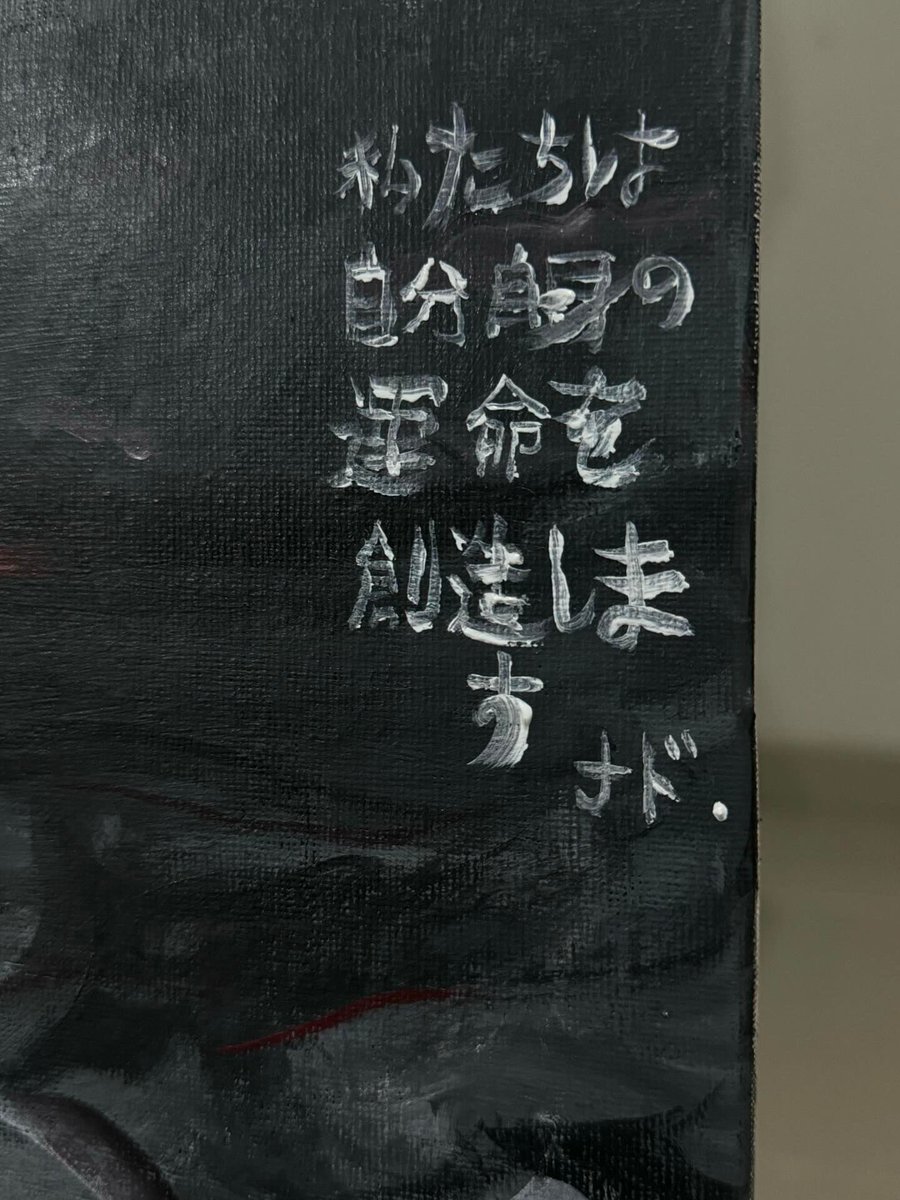 私たちは
自分自身の
運命を
創造しま
す
ナド.